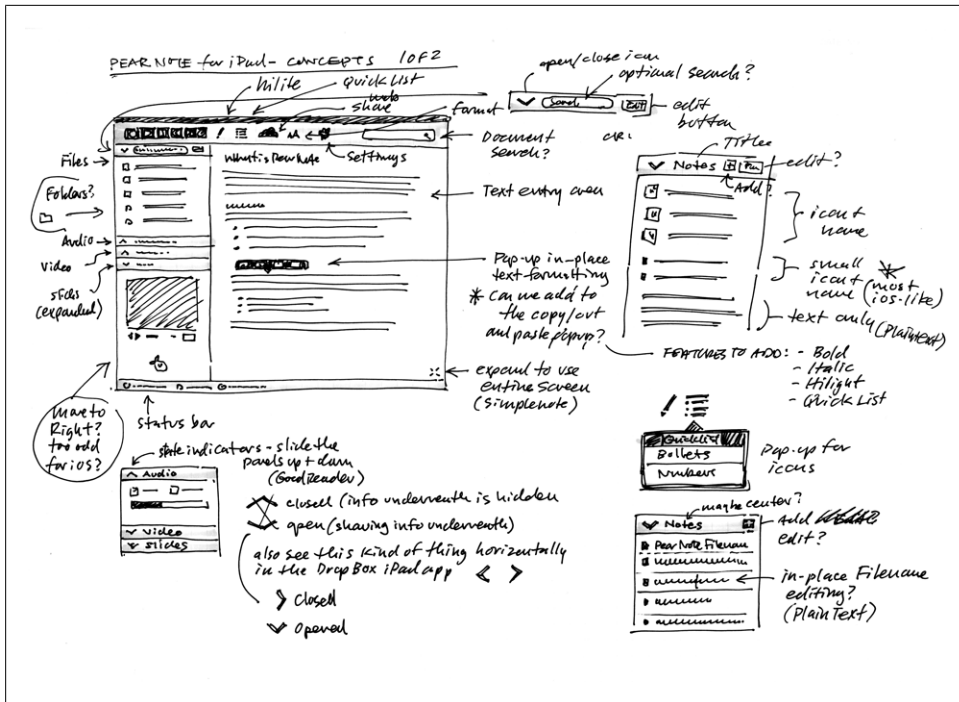 PEAR NOTE for iPad - CONCEPTS 1 OF 2
hilite
Quick List
web
share
format
open/close icon
optional search?
Search
Edit
edit
button
Settings
Document
search?
OR:
Files
Folders?
Audio
Video
slides
(expanded)
What is Pear Note
Text entry area
Pop-up in-place
text-formatting
* Can we add to
the copy/cut
and paste popup?
expand to use
entire screen
(Simplenote)
Move to
Right?
too odd
for iOS?
Status bar
Title
Notes
edit?
Add?
icon +
name
small
icon +
name (most
iOS-like)
text only
(PlainText)
FEATURES TO ADD: - Bold
- Italic
- Hilight
- Quick List
Quicklist
Bullets
Numbers
Pop-up for
icons
state indicators - slide the
panels up + down
(GoodReader)
Audio
Video
Slides
closed (info underneath is hidden
open (showing info underneath)
also see this kind of thing horizontally
in the DropBox iPad app < >
Closed
Opened
maybe center?
Notes
Add
edit?
Pear Note Filename
in-place Filename
editing?
(PlainText)